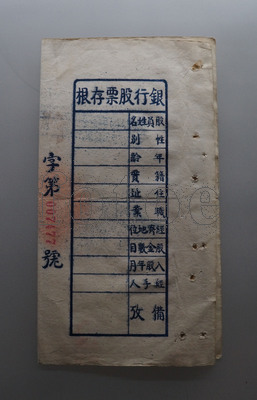 銀行股票存根
性別
年齡
籍貫
住址
職業
經濟地位
股金數目
入股年月
經手人
備攷
字第
號